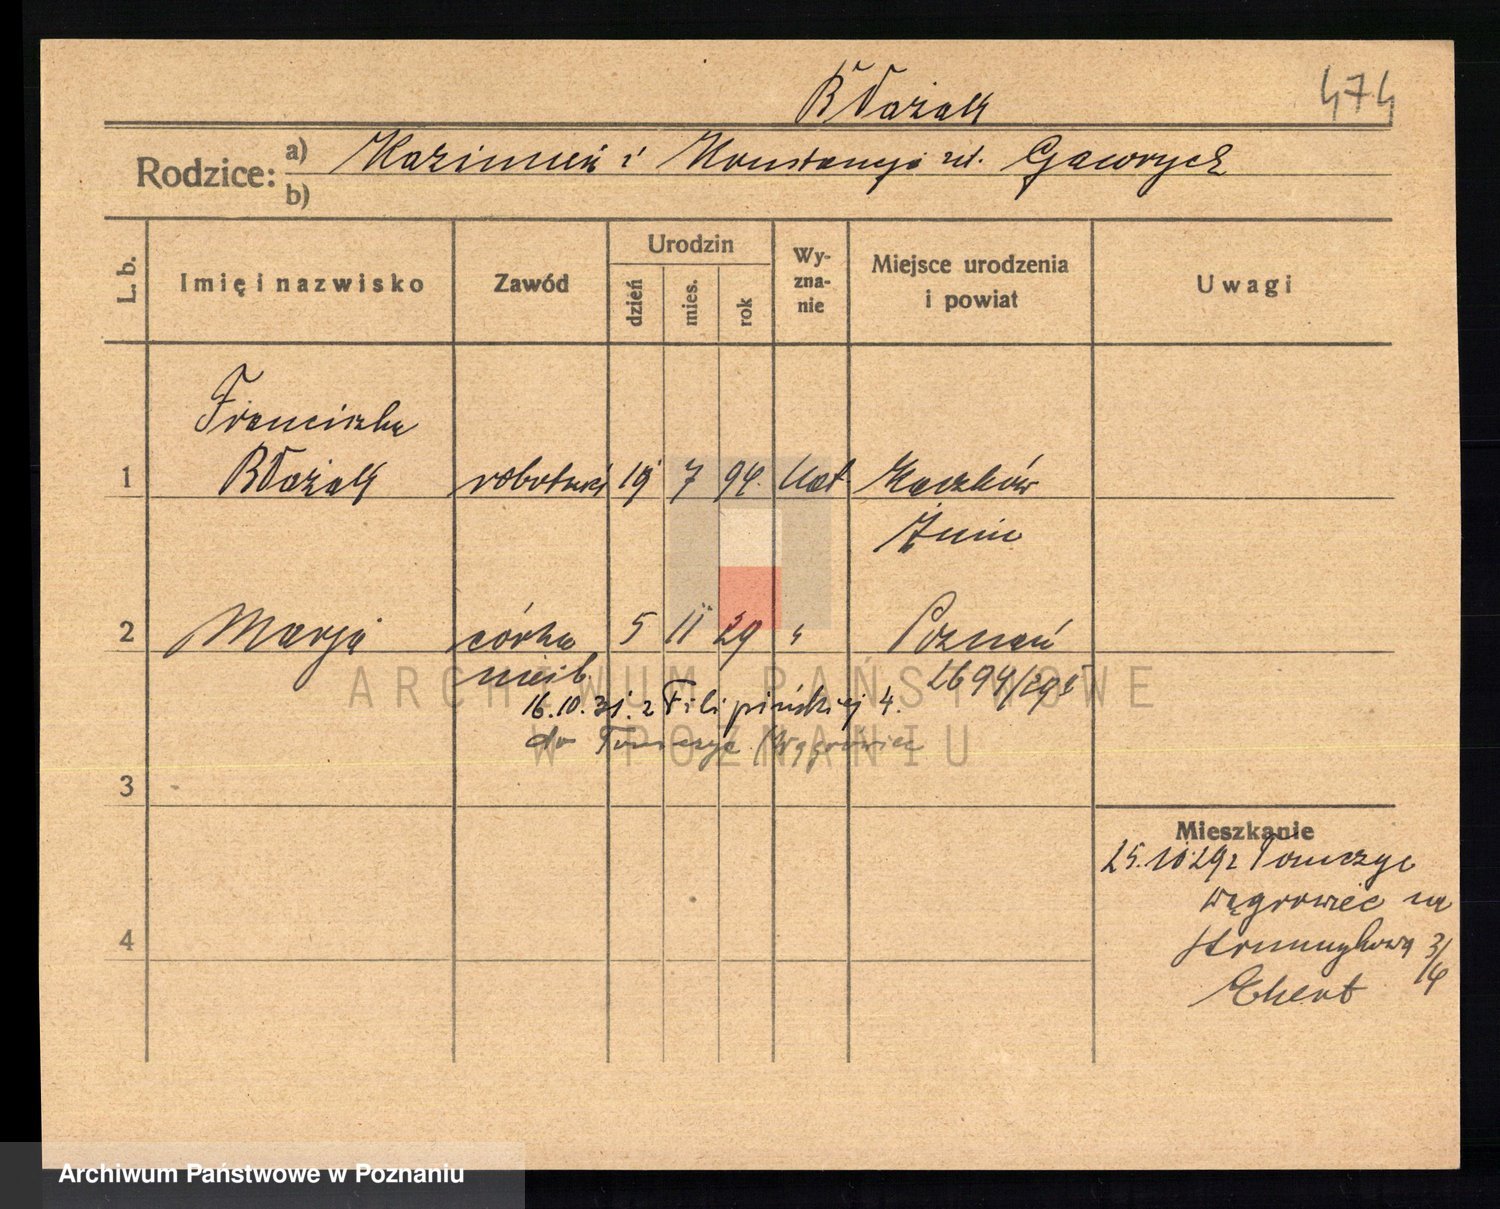 Błażak
474
Rodzice: a) Kazimierz i Konstancja zd. Gawrych
b)
L. b.
Imię i nazwisko
Zawód
Urodzin
dzień
mies.
rok
Wy-
zna-
nie
Miejsce urodzenia
i powiat
Uwagi
Franciszka
1 Błażak robotnica 19 7 94. kat
Żnin
2 Marja córka 5 11 29 " Poznań
nieśl. 2694/29
16.10.31. z Filipińskiej 4.
do Tomczyc Wągrowiec
3
Mieszkanie
25.10.29 z Tomczyc
Wągrowiec na
Strumykową 3/4
4
ARCHIWUM PAŃSTWOWE
W POZNANIU
Archiwum Państwowe w Poznaniu